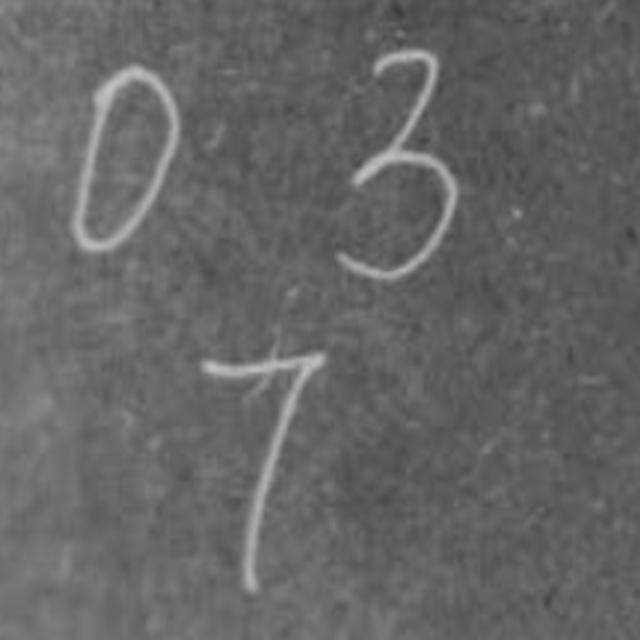 0 3
7